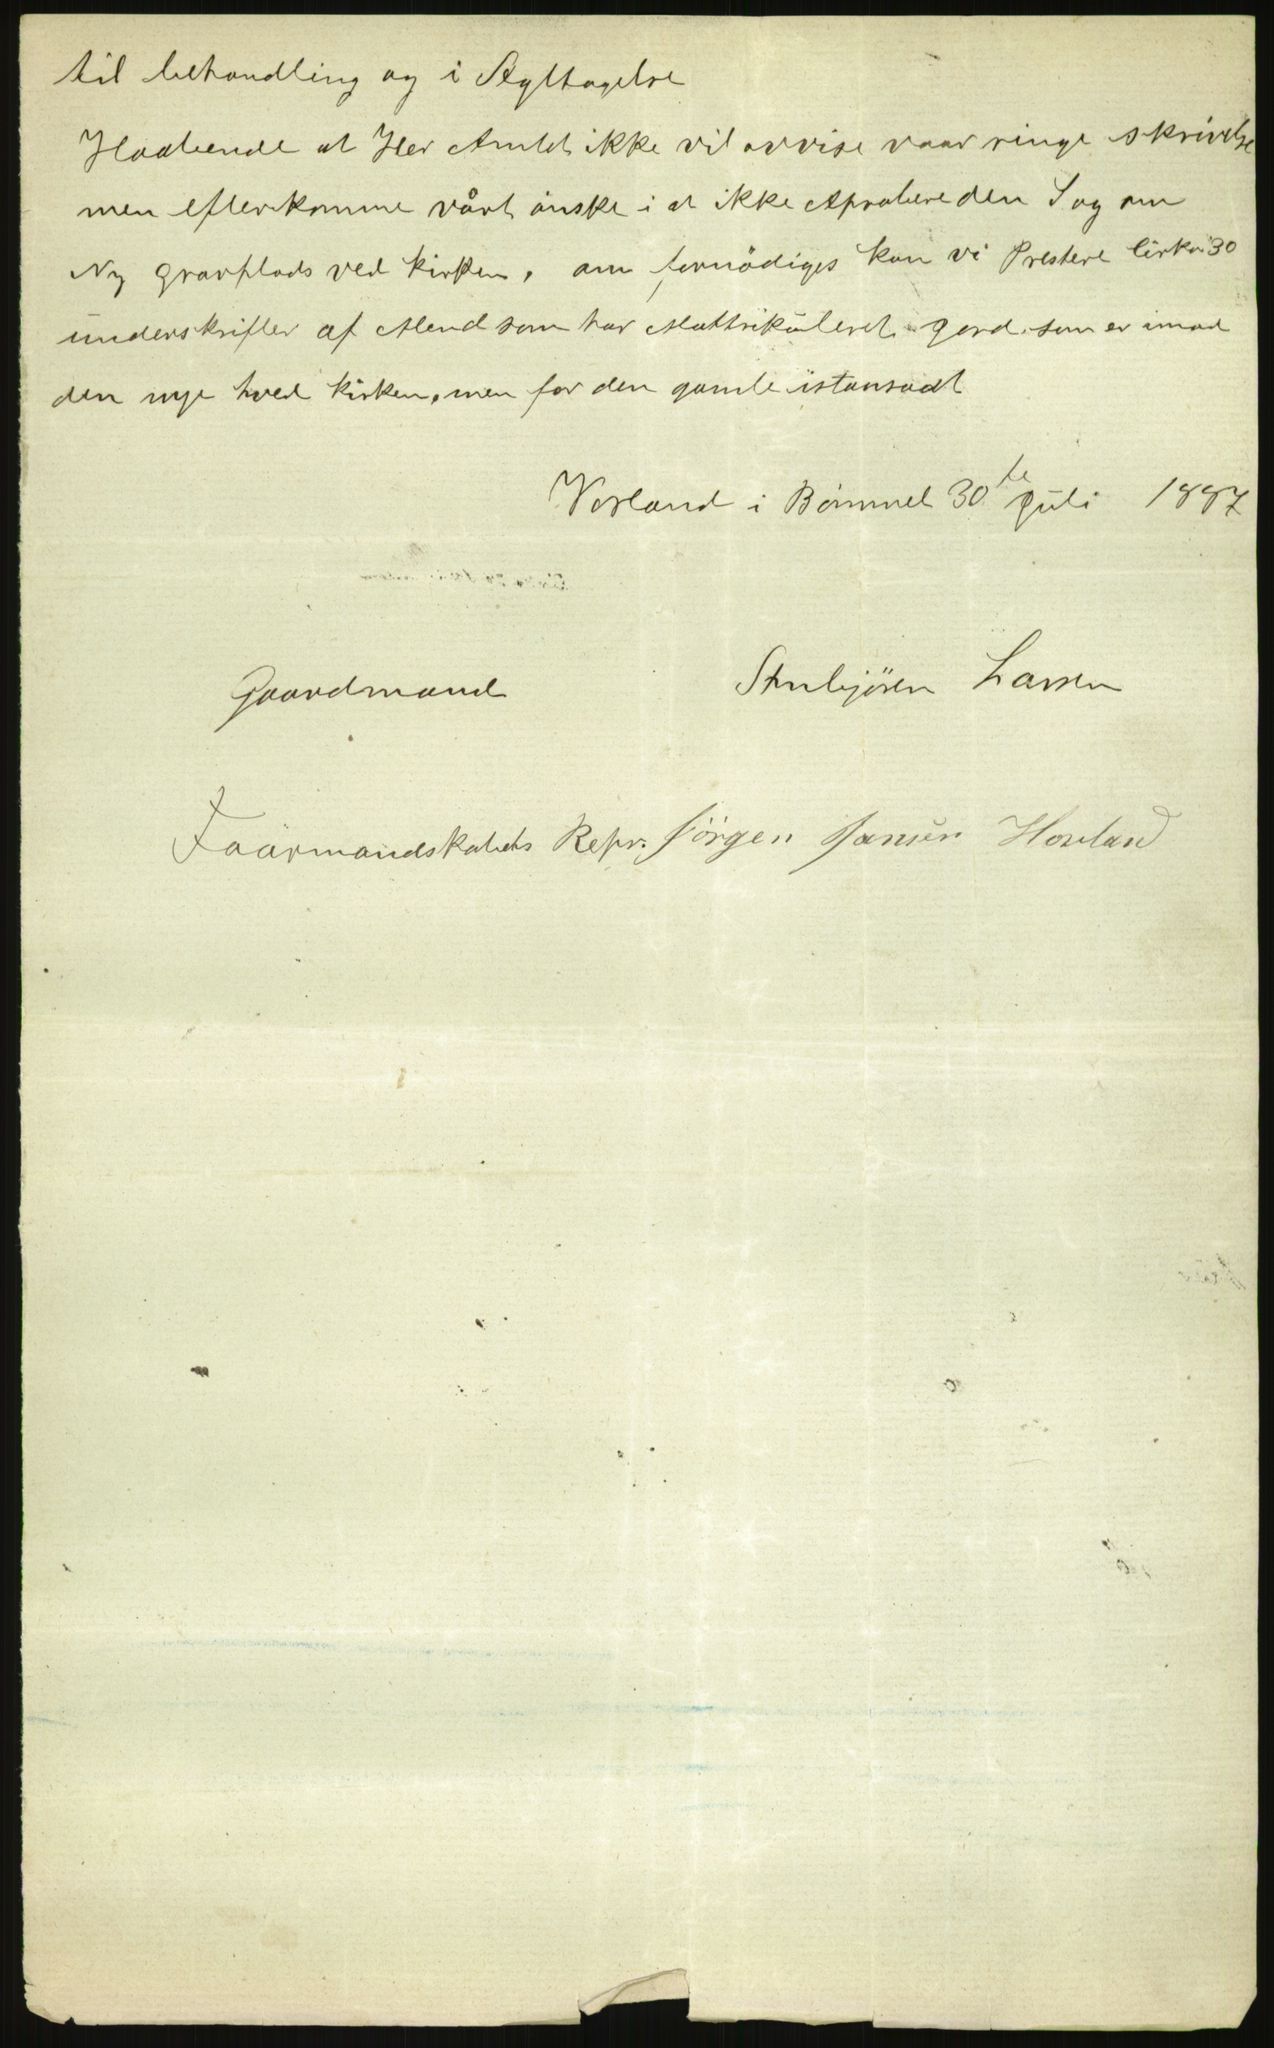 til behandling og i Agttagelse
Haabende at Her Amtet ikke vil avvise vaar ringe skrivelse
men efterkomme vårt ønske i at ikke Aprobere den Sag om
Ny gravplads ved kirken, om fornödiges kan vi Prestere Cirka 30
underskrifter af Mend som har Mattrikuleret gord som er imod
den nye hved kirken, men for den gamle istansadt
Vorland i Bömmel 30te Juli 1887
Gaardmand Stenbjören Larsen
Foormandskabets Repr. Jörgen Jansen Hovland